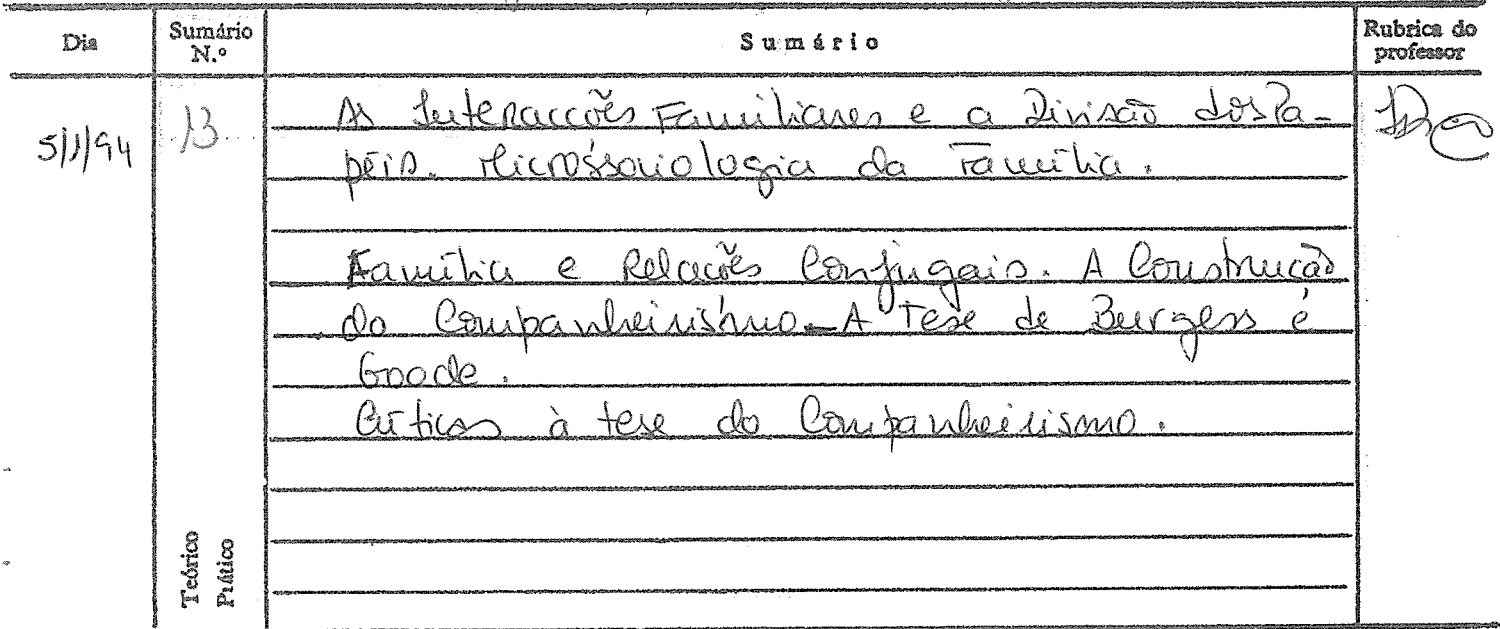 Dia
Sumário N.º
Sumário
Rubrica do professor
5/1/94
13
As Interacções Familiares e a Divisão dos Pa-
péis. Microssociologia da Família.
Família e Relações Conjugais. A Construção
do Companheirismo - A Tese de Burgess e
Goode.
Críticas à tese do Companheirismo.
Teórico
Prático